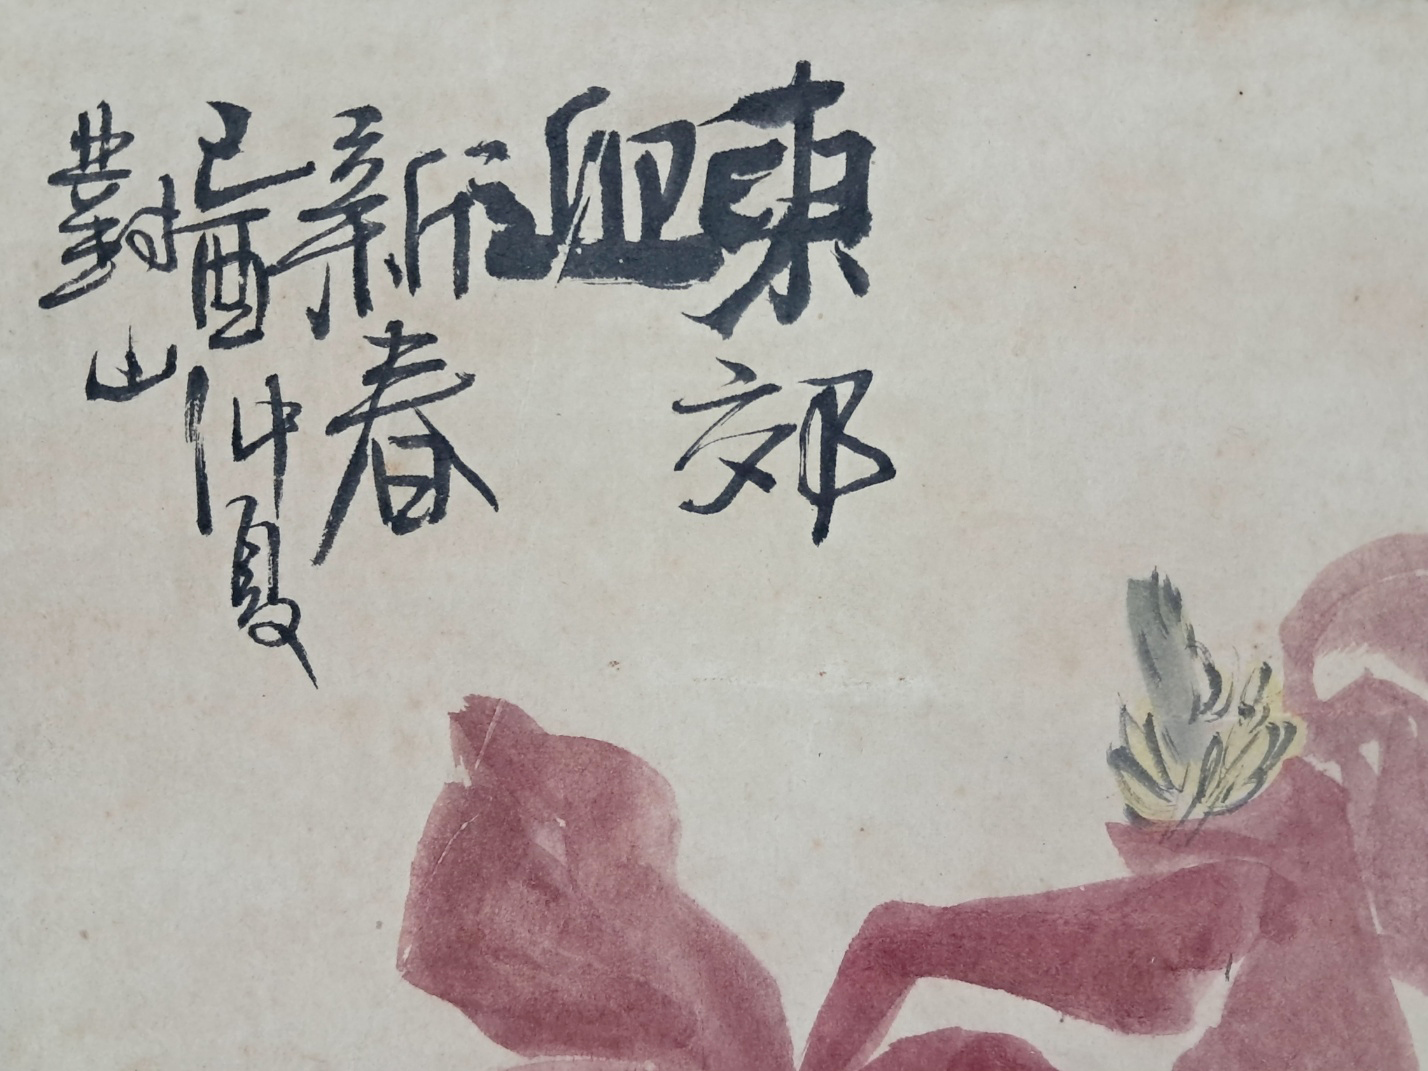 東郊
迎
新春
己酉仲夏
對山